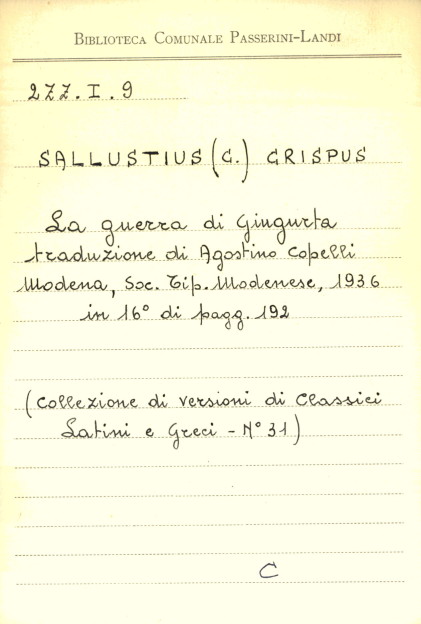 BIBLIOTECA COMUNALE PASSERINI-LANDI
277.I.9
SALLUSTIUS (C.) CRISPUS
La guerra di Giugurta
traduzione di Agostino Copelli
Modena, Soc. Tip. Modenese, 1936
in 16° di pagg. 192
(Collezione di versioni di Classici
Latini e Greci - N° 31)
C